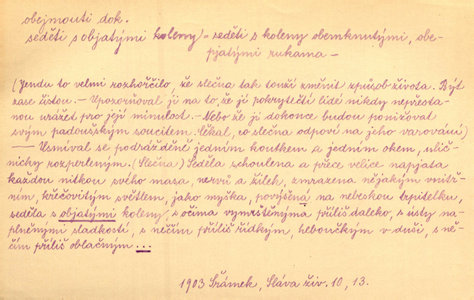 obejmouti dok.
seděti s objatými koleny = seděti s koleny obemknutými, obe-
pjatými rukama —
(Jendu to velmi rozhořčilo, že slečna tak touží změnit způsob života. Být
zase čistou. — Upozorňoval ji na to, že jí pokrytečtí lidé nikdy nepřesta-
nou urážet pro její minulost. — Nebo že ji dokonce budou ponižovat
svým padoušským soucitem. Čekal, co slečna odpoví na jeho varování)
— Usmíval se podrážděně jedním koutkem a jedním okem, ulič-
nicky rozperleným. (Slečna) Seděla schoulena a přece velice napjata
každou nitkou svého masa, nervů a žilek, zmrazena nějakým vnitř-
ním, křečovitým světlem, jako myška, povýšená na nebeskou trpitelku,
seděla s objatými koleny, s očima vymrštěnýma příliš daleko, s ústy na-
plněnými sladkostí, s něčím příliš řídkým, heboučkým v duši, s ně-
čím příliš oblačným ...
1903 Šrámek, Sláva živ. 10, 13.